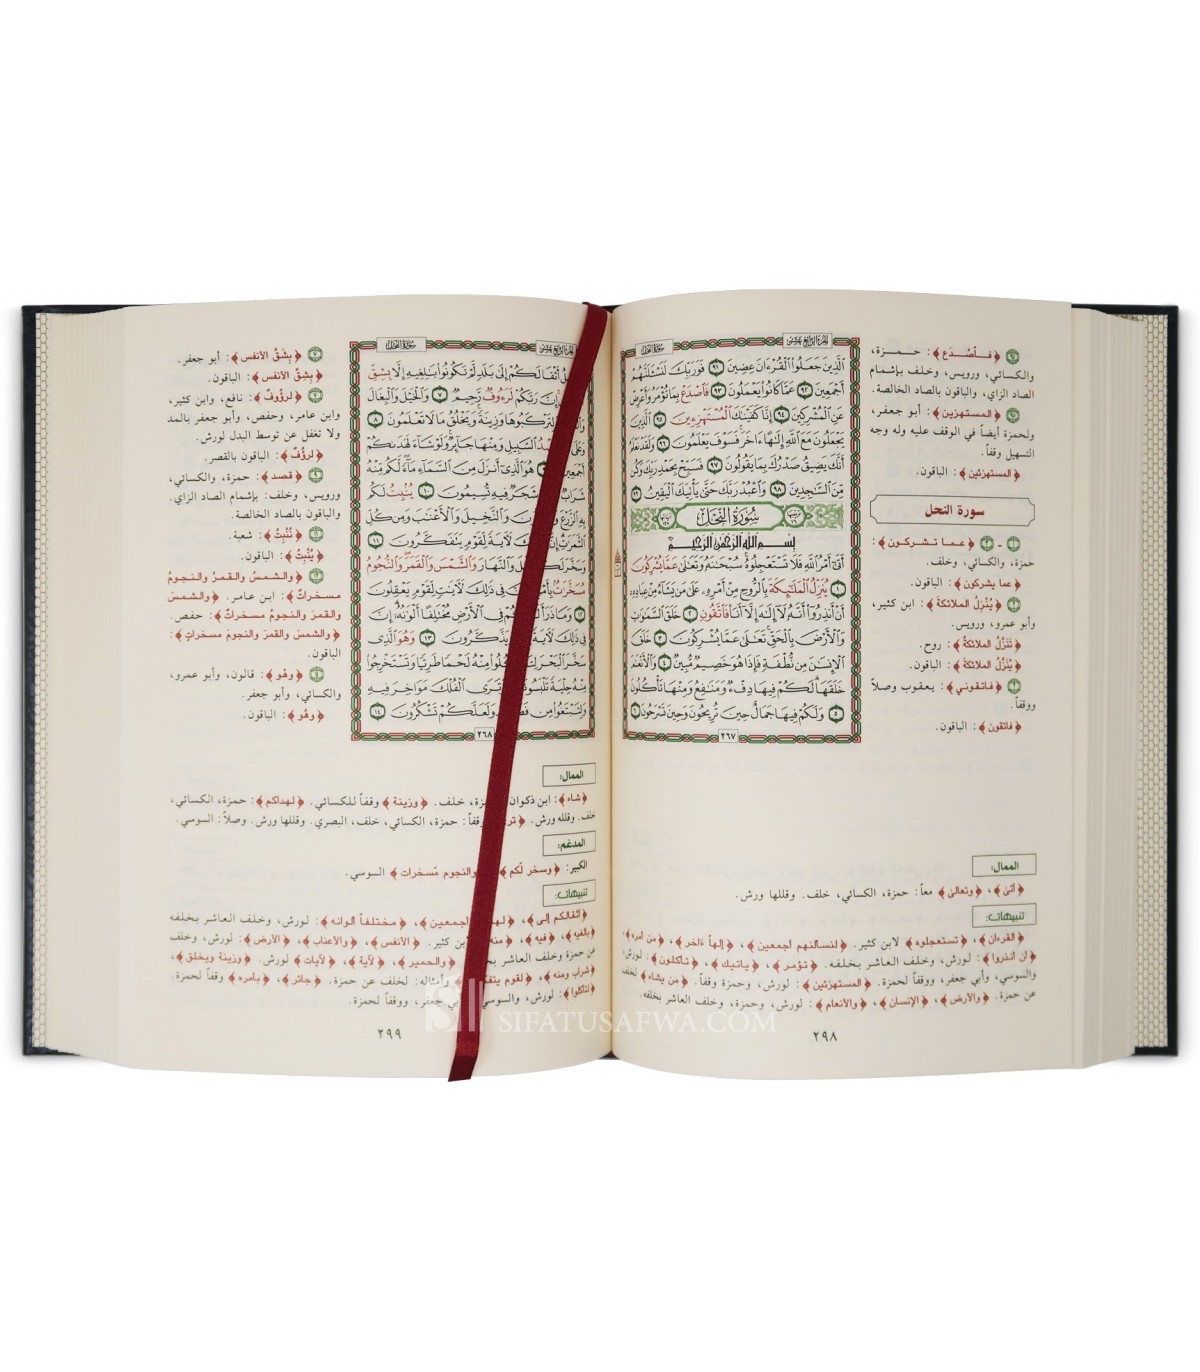 سورة الحجر
الجزء الرابع عشر
الَّذِينَ جَعَلُوا الْقُرْءَانَ عِضِينَ ٩١ فَوَرَبِّكَ لَنَسْـَٔلَنَّهُمْ
أَجْمَعِينَ ٩٢ عَمَّا كَانُوا يَعْمَلُونَ ٩٣ فَاصْدَعْ بِمَا تُؤْمَرُ وَأَعْرِضْ
عَنِ الْمُشْرِكِينَ ٩٤ إِنَّا كَفَيْنَٰكَ الْمُسْتَهْزِءِينَ ٩٥ الَّذِينَ
يَجْعَلُونَ مَعَ اللَّهِ إِلَٰهًا ءَاخَرَ فَسَوْفَ يَعْلَمُونَ ٩٦ وَلَقَدْ نَعْلَمُ
أَنَّكَ يَضِيقُ صَدْرُكَ بِمَا يَقُولُونَ ٩٧ فَسَبِّحْ بِحَمْدِ رَبِّكَ وَكُن
مِّنَ السَّٰجِدِينَ ٩٨ وَاعْبُدْ رَبَّكَ حَتَّىٰ يَأْتِيَكَ الْيَقِينُ ٩٩
سُورَةُ النَّحْلِ
بِسْمِ اللَّهِ الرَّحْمَٰنِ الرَّحِيمِ
أَتَىٰ أَمْرُ اللَّهِ فَلَا تَسْتَعْجِلُوهُ سُبْحَٰنَهُ وَتَعَٰلَىٰ عَمَّا يُشْرِكُونَ
١ يُنَزِّلُ الْمَلَٰٓئِكَةَ بِالرُّوحِ مِنْ أَمْرِهِ عَلَىٰ مَن يَشَآءُ مِنْ عِبَادِهِ
أَنْ أَنذِرُوا أَنَّهُ لَآ إِلَٰهَ إِلَّآ أَنَا فَاتَّقُونِ ٢ خَلَقَ السَّمَٰوَٰتِ
وَالْأَرْضَ بِالْحَقِّ تَعَٰلَىٰ عَمَّا يُشْرِكُونَ ٣ خَلَقَ
الْإِنسَٰنَ مِن نُّطْفَةٍ فَإِذَا هُوَ خَصِيمٌ مُّبِينٌ ٤ وَالْأَنْعَٰمَ
خَلَقَهَا لَكُمْ فِيهَا دِفْءٌ وَمَنَٰفِعُ وَمِنْهَا تَأْكُلُونَ
٥ وَلَكُمْ فِيهَا جَمَالٌ حِينَ تُرِيحُونَ وَحِينَ تَسْرَحُونَ ٦
٢٦٧
﴿فاصدع﴾: حمزة،
والكسائي، ورويس، وخلف بإشمام
الصاد الزاي، والباقون بالصاد الخالصة.
﴿المستهزين﴾: أبو جعفر،
ولحمزة أيضاً في الوقف عليه وله وجه
التسهيل وقفاً.
﴿المستهزئين﴾: الباقون.
سورة النحل
﴿عما تشركون﴾:
حمزة، والكسائي، وخلف.
﴿عما يشركون﴾: الباقون.
﴿يُنْزِلُ الملائكةَ﴾: ابن كثير،
وأبو عمرو، ورويس.
﴿تَنَزَّلُ الملائكةُ﴾: روح.
﴿يُنَزِّلُ الملائكةَ﴾: الباقون.
﴿فاتقوني﴾: يعقوب وصلاً
ووقفاً.
﴿فاتقون﴾: الباقون.
الممال:
﴿أتى﴾، ﴿وتعالى﴾ معاً: حمزة، الكسائي، خلف. وقللها ورش.
تنبيهات:
﴿القرءان﴾، ﴿تستعجلوه﴾ لابن كثير. ﴿لنسألنهم أجمعين﴾، ﴿إلهاً ءاخر﴾، ﴿من أمره﴾،
﴿أن أنذروا﴾: لورش، وخلف العاشر بخلفه. ﴿تؤمر﴾، ﴿يأتيك﴾، ﴿تأكلون﴾: لورش،
والسوسي، وأبي جعفر، ووقفاً لحمزة. ﴿المستهزئين﴾: لورش، وحمزة وقفاً. ﴿من يشاء﴾ لخلف
عن حمزة. ﴿والأرض﴾، ﴿الإنسان﴾، ﴿والأنعام﴾: لورش، وحمزة، وخلف العاشر بخلفه.
٢٩٨
سورة النحل
الجزء الرابع عشر
أَثْقَالَكُمْ إِلَىٰ بَلَدٍ لَّمْ تَكُونُوا بَٰلِغِيهِ إِلَّا بِشِقِّ
إِنَّ رَبَّكُمْ لَرَءُوفٌ رَّحِيمٌ ٧ وَالْخَيْلَ وَالْبِغَالَ
لِتَرْكَبُوهَا وَزِينَةً وَيَخْلُقُ مَا لَا تَعْلَمُونَ ٨
وَعَلَى السَّبِيلِ وَمِنْهَا جَآئِرٌ وَلَوْ شَآءَ لَهَدَىٰكُمْ
أَجْمَعِينَ هُوَ الَّذِي أَنزَلَ مِنَ السَّمَآءِ مَآءً لَّكُم مِّنْهُ
شَرَابٌ شَجَرٌ فِيهِ تُسِيمُونَ ١٠ يُنبِتُ لَكُم
بِهِ الزَّرْعَ وَالنَّخِيلَ وَالْأَعْنَٰبَ وَمِن كُلِّ
الثَّمَرَٰتِ إِنَّ لَأٓيَةً لِّقَوْمٍ يَتَفَكَّرُونَ ١١
وَسَخَّرَ لَكُمُ وَالنَّهَارَ وَالشَّمْسَ وَالْقَمَرَ وَالنُّجُومُ
مُسَخَّرَٰتٌ فِي ذَٰلِكَ لَأٓيَٰتٍ لِّقَوْمٍ يَعْقِلُونَ
١٢ وَمَا ذَرَأَ لَكُمْ فِي الْأَرْضِ مُخْتَلِفًا أَلْوَٰنُهُ إِنَّ
فِي ذَٰلِكَ لَأٓيَةً يَذَّكَّرُونَ ١٣ وَهُوَ الَّذِي
سَخَّرَ الْبَحْرَ لِتَأْكُلُوا مِنْهُ لَحْمًا طَرِيًّا وَتَسْتَخْرِجُوا
مِنْهُ حِلْيَةً تَلْبَسُونَهَا وَتَرَى الْفُلْكَ مَوَاخِرَ فِيهِ
وَلِتَبْتَغُوا مِن فَضْلِهِ وَلَعَلَّكُمْ تَشْكُرُونَ ١٤
٢٦٨
﴿بِشَقِّ الأنفس﴾: أبو جعفر.
﴿بِشِقِّ الأنفس﴾: الباقون.
﴿لرؤوفٌ﴾: نافع، وابن كثير،
وابن عامر، وحفص، وأبو جعفر بالمد
ولا تغفل عن توسط البدل لورش.
﴿لرؤُفٌ﴾: الباقون بالقصر.
﴿قصد﴾: حمزة، والكسائي،
ورويس، وخلف: بإشمام الصاد الزاي.
والباقون بالصاد الخالصة.
﴿نُنْبِتُ﴾: شعبة.
﴿يُنْبِتُ﴾: الباقون.
﴿والشمسُ والقمرُ والنجومُ
مسخراتٌ﴾: ابن عامر. ﴿والشمسَ
والقمرَ والنجومُ مسخراتٌ﴾: حفص.
﴿والشمسَ والقمرَ والنجومَ مسخراتٍ﴾:
الباقون.
﴿وهْو﴾: قالون، وأبو عمرو،
والكسائي، وأبو جعفر.
﴿وهُو﴾: الباقون.
الممال:
﴿شاء﴾: ابن ذكوان، حمزة، خلف. ﴿وزينة﴾ وقفاً للكسائي. ﴿لهداكم﴾: حمزة، الكسائي،
خلف. وقلله ورش. وقفاً: حمزة، الكسائي، خلف، البصري. وقللها ورش. وصلاً: السوسي.
المدغم:
الكبير: ﴿وسخر لّكم﴾ ﴿والنجوم مّسخرات﴾ السوسي.
تنبيهات:
﴿أثقالكم إلى﴾، أجمعين﴾، ﴿مختلفاً ألوانه﴾: لورش، وخلف العاشر بخلفه
﴿بالغيه﴾، ﴿فيه﴾، لابن كثير. ﴿الأنفس﴾، ﴿والأعناب﴾، ﴿الأرض﴾: لورش، وخلف
عن حمزة وخلف العاشر ﴿والحمير﴾، ﴿لآية﴾، ﴿لآيات﴾ لورش. ﴿وزينة ويخلق﴾،
﴿شراب ومنه﴾، ﴿لقوم وأمثاله: لخلف عن حمزة. ﴿جائر﴾، ﴿بأمره﴾ وقفاً لحمزة.
﴿لتأكلوا﴾: لورش، والسوسي، وأبي جعفر، ووقفاً لحمزة.
٢٩٩
SIFATUSAFWA.COM